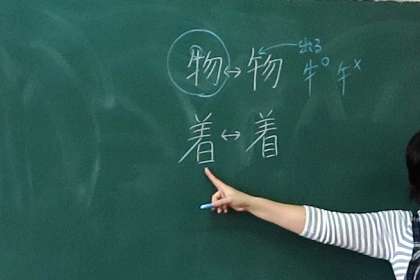 物↔物 出る
牛○ 午×
着↔着